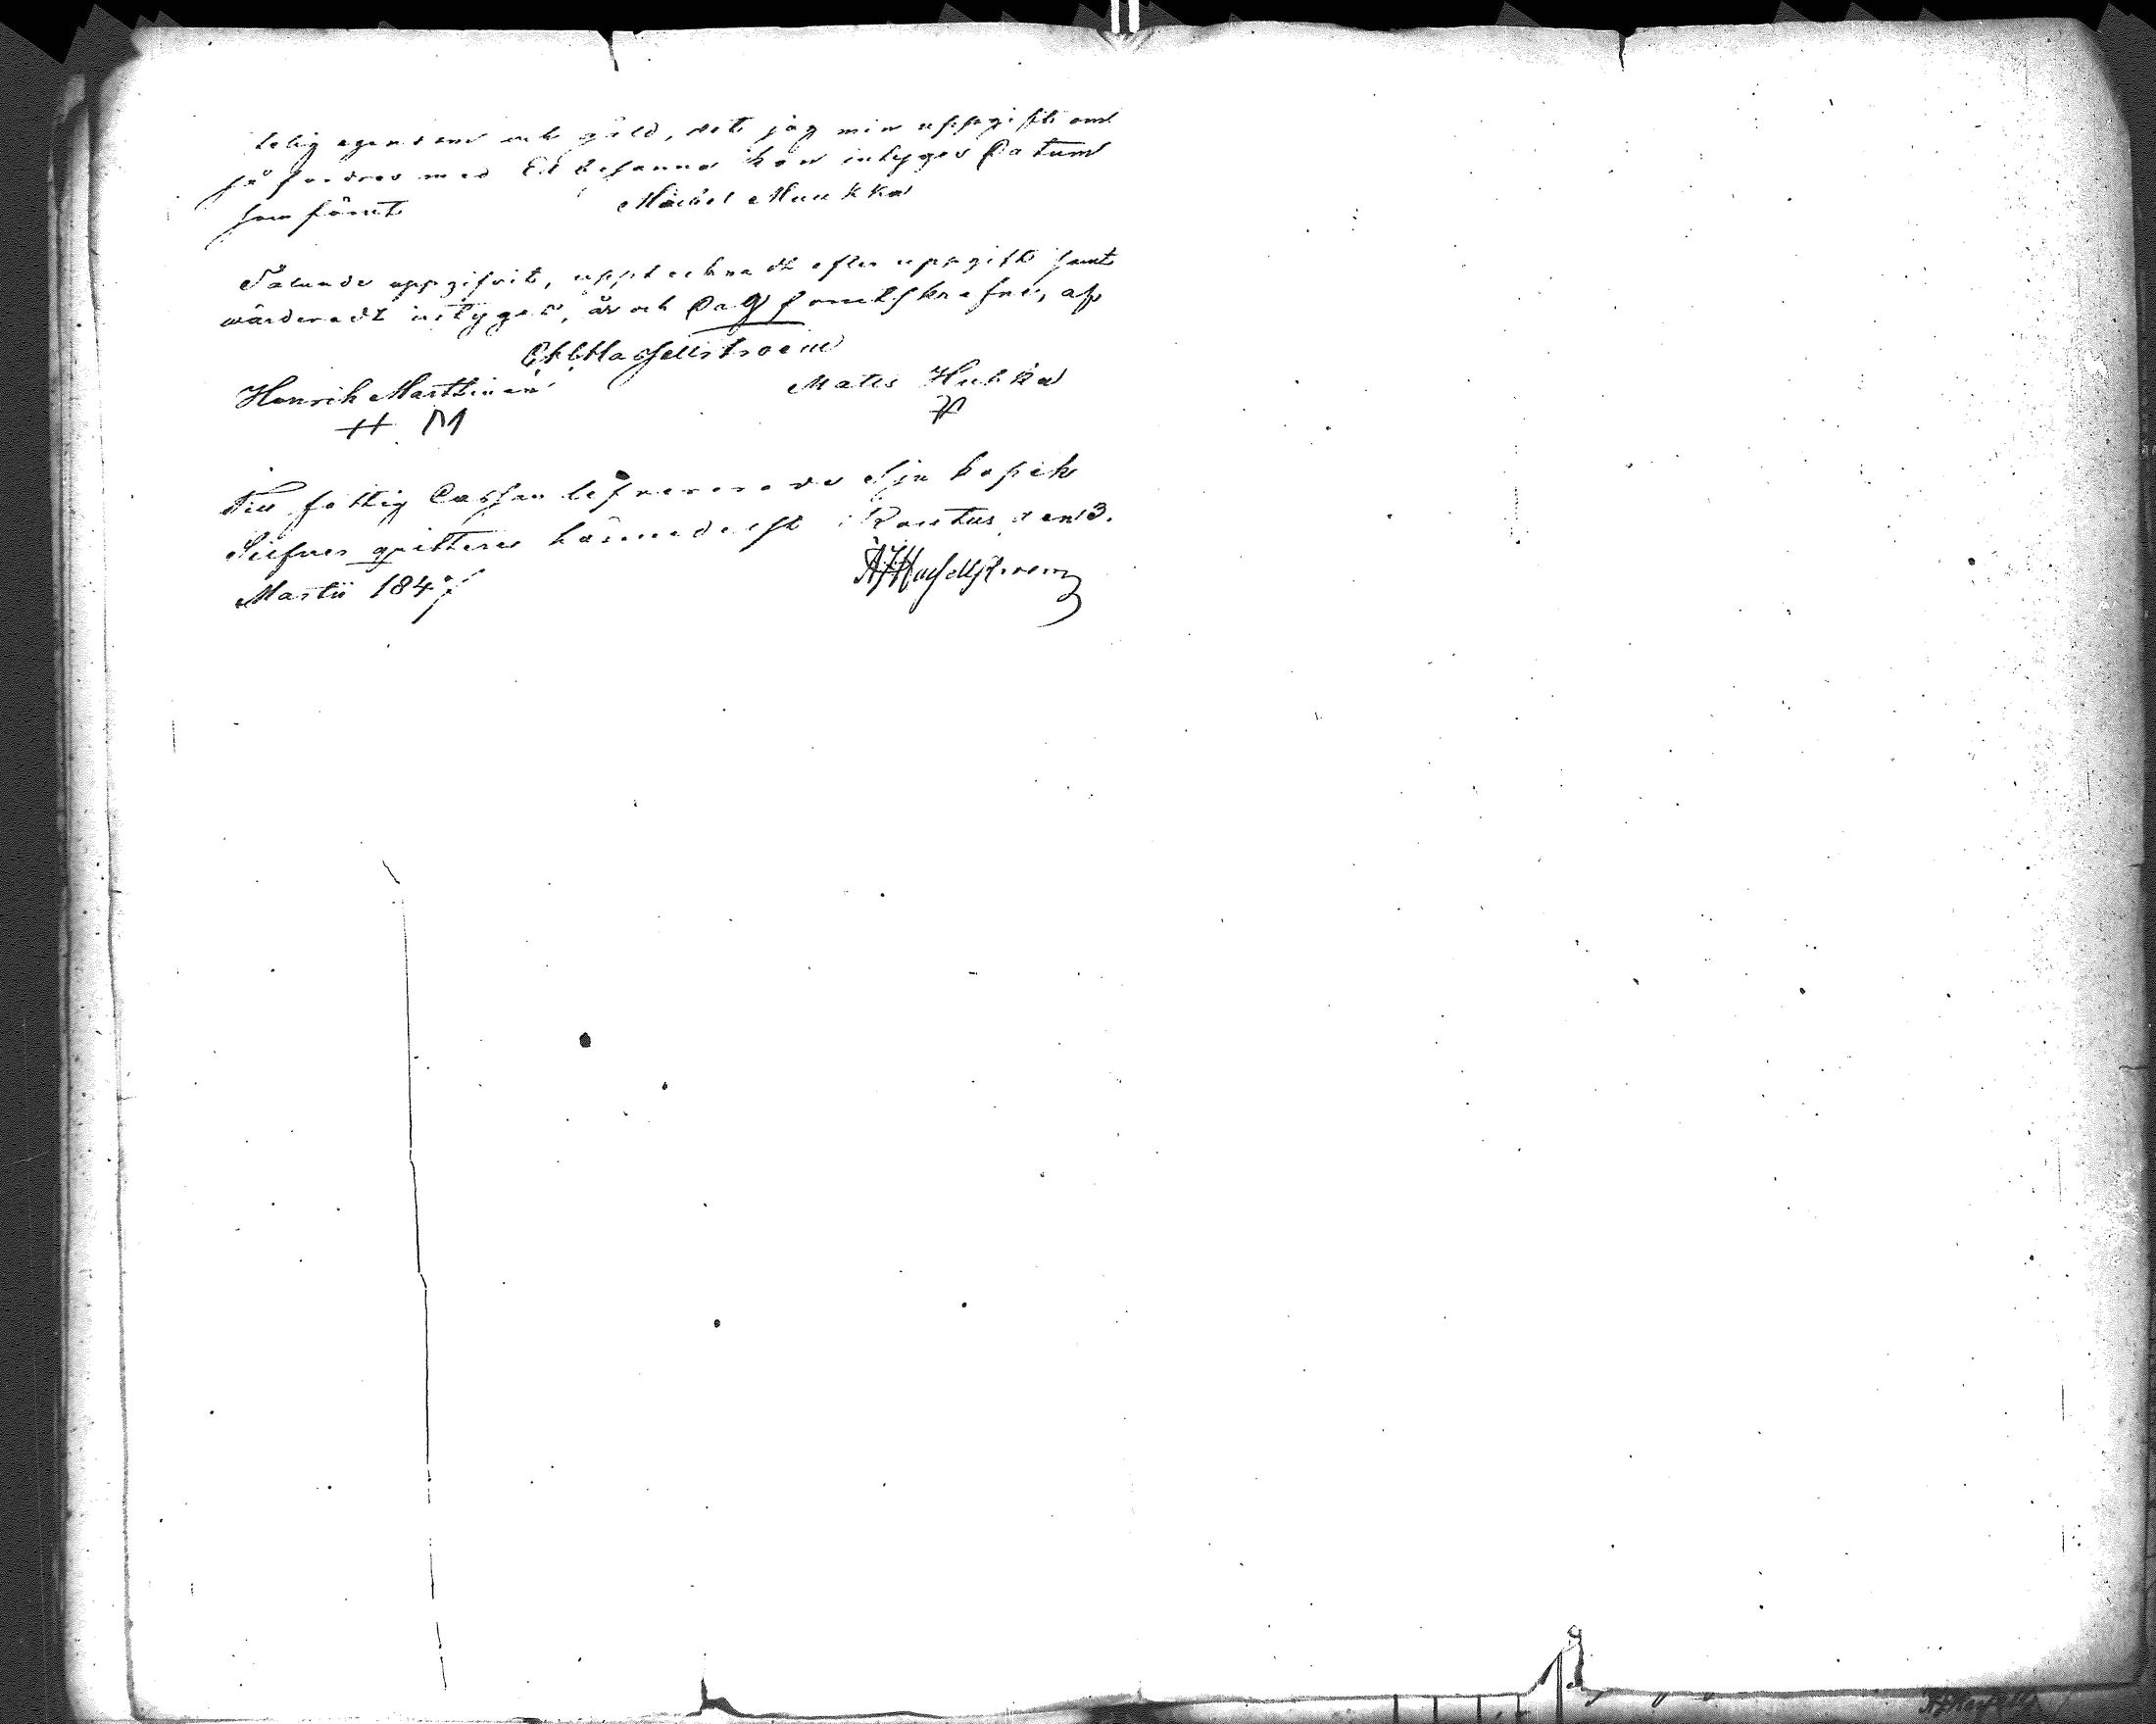 lelig egendom och gäld, det jag min uppgift om
så fordras med Ed besanna kan intygas Datum
som förut Michel Muukka
Sålunda uppgifvit, upptecknadt efter uppgift samt
wärderadt intygas, år och Dag förutskrefne, af
Hasselstroem
Henrik Marttinen Matts Hukka
H M H
Till fattig Cassan lefvererade Sju kopek
Silfver qvitteras härmedelst Rautus den 3.
Martii 1847
Hasselstroem